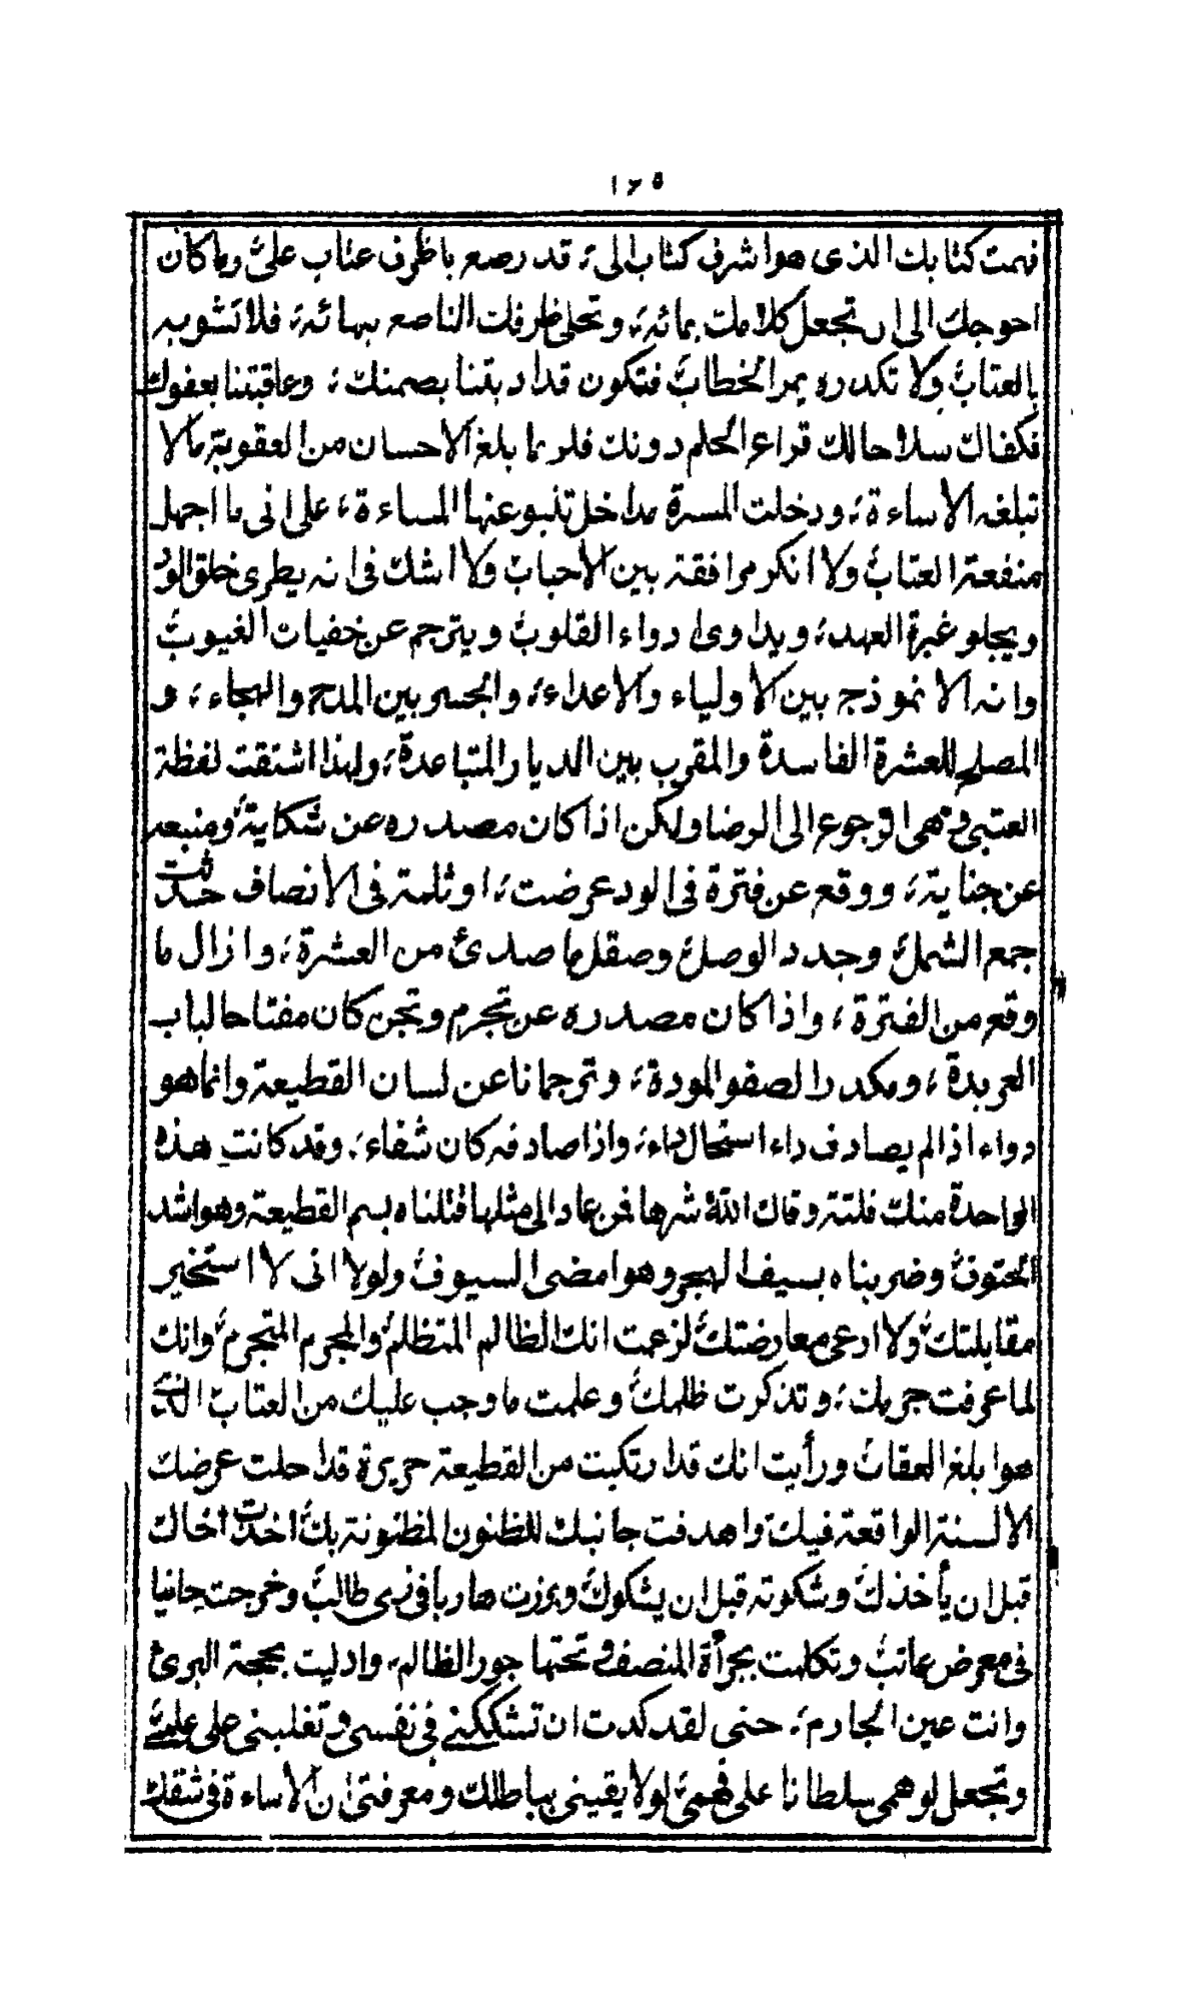 ١٢٥
فهمت كتابك الذى هو اشرف كتاب الىّ، قد رصع باظرف عتاب علىّ وما كان
احوجك الى ان تجعل كلامك بمائه، وتحلى ظرفك الناصع ببهائه، فلا تشوبه
بالعتاب ولا تكدره بمر الخطاب فتكون قد ادبتنا بصمتك، وعاقبتنا بعفوك
فكفاك سلاحالك قراع الحلم دونك فلربما بلغ الاحسان من العقوبة مالا
تبلغه الاساءة، ودخلت المسرة مداخل تنبو عنها المساءة، على انى ما اجهل
منفعة العتاب ولا انكر مرافقته بين الاحباب ولا اشك فى انه يطرى خلق الود
ويجلو غبرة العهد، ويداوى ادواء القلوب ويترجم عن خفيات الغيوب
وانه الانموذج بين الاولياء والاعداء، والجسر بين المدح والهجاء، و
المصلح للعشرة الفاسدة والمقرب بين الديار المتباعدة، ولهذا اشتقت لفظة
العتبى وهى الرجوع الى الرضا ولكن اذا كان مصدره عن شكاية ومنبعه
عن جناية، ووقع عن فترة فى الود عرضت، او ثلمة فى الانصاف حدثت
جمع الشمل وجدد الوصل وصقل ما صدئ من العشرة، وازال ما
وقع من الفترة، واذا كان مصدره عن تجرم وتجن كان مفتاحا لباب
العربدة، ومكدرا لصفو المودة، وترجمانا عن لسان القطيعة وانما هو
دواء اذا لم يصادف داء استحال داء، واذا صادفه كان شفاء، وقد كانت هذه
الواحدة منك فلتة وقاك الله شرها فمن عاد الى مثلها قتلناه بسم القطيعة وهو اشد
الحتوف وضربناه بسيف الهجر وهو امضى السيوف ولولا انى لا استخير
مقابلتك ولا ادعى معارضتك لزعمت انك الظالم المتظلم والمجرم المتجرم وانك
لما عرفت جرمك، وتذكرت ظلمك وعلمت ما وجب عليك من العتاب الذى
هو ابلغ العقاب ورأيت انك قد ارتكبت من القطيعة جريرة قد احلت عرضك
الالسنة الواقعة فيك واهدفت جانبك للظنون المظنونة بك اخذت اخاك
قبل ان يأخذك وشكوته قبل ان يشكوك وبرزت هاربا فى زى طالب وخرجت جانيا
فى معرض عاتب وتكلمت بجرأة المنصف وتحتها جور الظالم، وادليت بحجة البرئ
وانت عين الجارم، حتى لقد كدت ان تشككنى فى نفسى وتغلبنى على علمى
وتجعل لوهمى سلطانا على فهمى لولا يقينى بباطلك ومعرفتى ان الاساءة فى شقك